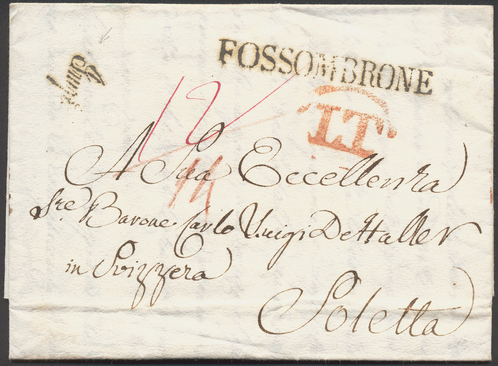 FOSSOMBRONE
12
LT
A Sua Eccellenza
Sre Barone Carlo Luigi De Haller
in Svizzera
Soletta